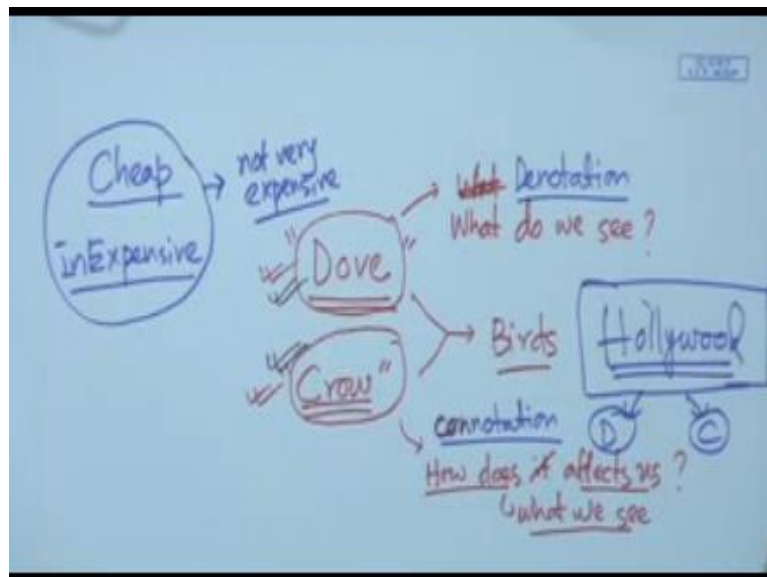 Cheap
inExpensive
not very
expensive
"Dove"
Crow"
Denotation
What do we see?
Birds
Hollywood
D C
connotation
How does it affects us?
what we see